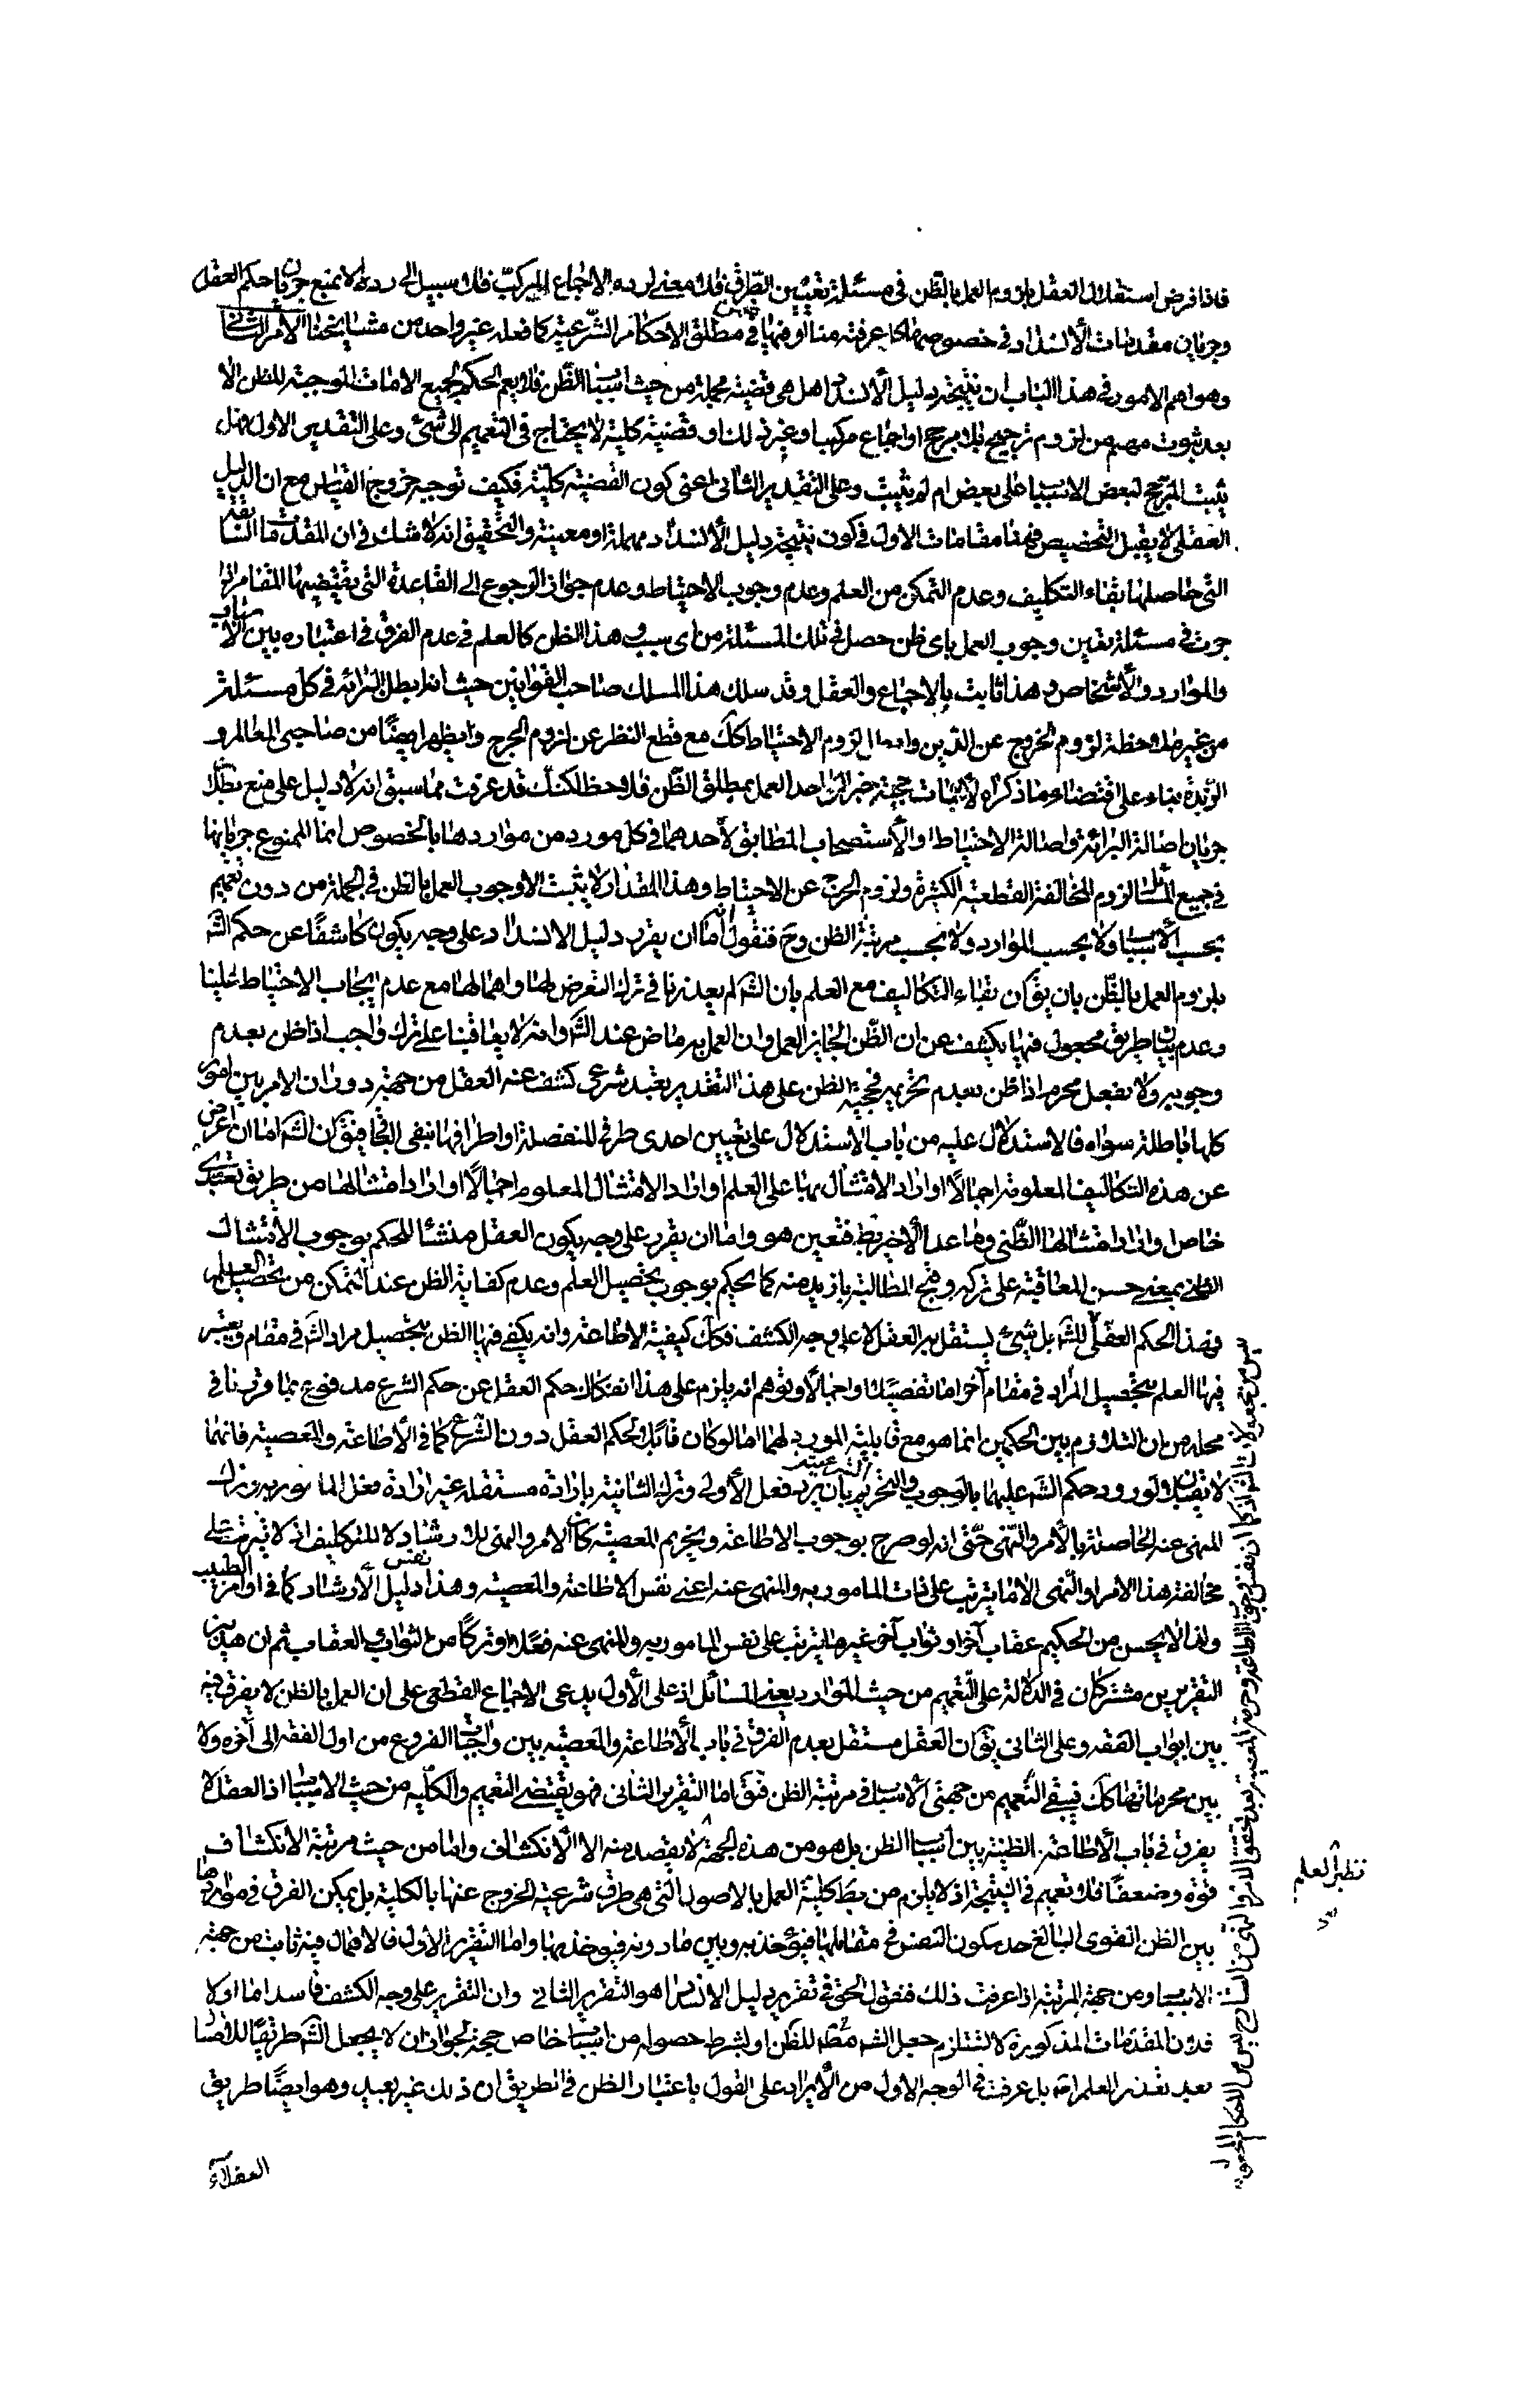 فاذا فرض استقلال العقل بلزوم العمل بالظن فى مسئلة تعيين الطرق فلا معنى لرده بالاجماع المركب فلا سبيل الى رده الا بمنع جريان حكم العقل
وجريان مقدمات الانسداد فى خصوصها كما عرفته منا او فيها فى ضمن مطلق الاحكام الشرعية كما فعله غير واحد من مشايخنا الامر الثانى
وهو اهم الامور فى هذا الباب ان نتيجة دليل الانسداد هل هى قضية مهملة من حيث اسباب الظن فلا يعم الحكم لجميع الامارات الموجبة للظن الا
بعد ثبوت معمم من لزوم ترجيح بلا مرجح او اجماع مركب او غير ذلك او قضية كلية لا يحتاج فى التعميم الى شئ وعلى التقدير الاول فهل
يثبت المرجح لبعض الاسباب على بعض ام لم يثبت وعلى التقدير الثانى اعنى كون القضية كلية فكيف توجيه خروج القياس مع ان الدليل
العقلى لا يقبل التخصيص فهنا مقامات الاول فى كون نتيجة دليل الانسداد مهملة او معينة والتحقيق انه لا شك فى ان المقدمات السابقة
التى حاصلها بقاء التكليف وعدم التمكن من العلم وعدم وجوب الاحتياط وعدم جواز الرجوع الى القاعدة التى يقتضيها المقام اذا
جرت فى مسئلة تعين وجوب العمل باى ظن حصل فى تلك المسئلة من اى سبب وهذا الظن كالعلم فى عدم الفرق فى اعتباره بين الاسباب
والموارد والاشخاص وهذا ثابت بالاجماع والعقل وقد سلك هذا المسلك صاحب القوانين حيث انه ابطل البرائة فى كل مسئلة
من غير ملاحظة لزوم الخروج عن الدين وابطل لزوم الاحتياط كك مع قطع النظر عن لزوم الحرج ويظهر ايضا من صاحبى المعالم و
الزبدة بناء على اقتضاء ما ذكراه لاثبات حجية خبر الواحد العمل بمطلق الظن فلاحظ لكنك قد عرفت مما سبق انه لا دليل على منع
جريان اصالة البرائة واصالة الاحتياط والاستصحاب المطابق لاحدهما فى كل مورد من مواردها بالخصوص انما الممنوع جريانها
فى جميع المسائل للزوم المخالفة القطعية الكثيرة ولزوم الحرج عن الاحتياط وهذا المقدار لا يثبت الا وجوب العمل بالظن فى الجملة من دون تعميم
بحسب الاسباب ولا بحسب الموارد ولا بحسب مرتبة الظن وح فنقول انه اما ان يقرر دليل الانسداد على وجه يكون كاشفا عن حكم الشه
بلزوم العمل بالظن بان يق ان بقاء التكاليف مع العلم بان الشه لم يعذرنا فى ترك التعرض لها واهمالها مع عدم ايجاب الاحتياط علينا
وعدم بيان طريق مجعول فيها يكشف عن ان الظن الجايز العمل وان العمل به ماض عند الشه وانه لا يعاقبنا على ترك واجب اذا ظن بعدم
وجوبه ولا بفعل محرم اذا ظن بعدم تحريمه فحجية الظن على هذا التقدير تعبد شرعى كشف عنه العقل من جهة دوران الامر بين امور
كلها باطلة سواه فالاستدلال عليه من باب الاستدلال على تعيين احدى طرفى المنفصلة او اطرافها بنفى الباقى فيق ان الشه اما ان اعرض
عن هذه التكاليف المعلومة اجمالا او اراد الامتثال بها على العلم او اراد الامتثال المعلوم اجمالا او اراد امتثالها من طريق تعبدى
خاص او اراد امتثالها الظنى وما عدا الاخير بط فتعين هو واما ان يقرر على وجه يكون العقل منشئا للحكم بوجوب الامتثال
الظنى بمعنى حسن المعاقبة على تركه وقبح المطالبة بازيد منه كما يحكم بوجوب تحصيل العلم وعدم كفاية الظن عند التمكن من تحصيل العلم
فهذا الحكم العقلى ليس من مجعولات الشه بل شئ يستقل به العقل لا على وجه الكشف فكك كيفية الاطاعة وانه يكفى فيها الظن بتحصيل مراد الشه فى مقام ويعتبر
فيها العلم بتحصيل المراد فى مقام آخر اما تفصيلا او اجمالا وتوهم انه يلزم على هذا انفكاك حكم العقل عن حكم الشرع مدفوع بما قررنا فى
محله من ان التلازم بين الحكمين انما هو مع قابلية المورد لهما اما لو كان قابلا لحكم العقل دون الشرع كما فى الاطاعة والمعصية فانهما
لا يقبلان لورود حكم الشه عليهما بالوجوب والتحريم الشرعيين بان يريد فعل الاولى وترك الثانية بارادة مستقلة غير ارادة فعل المامور به وترك
المنهى عنه الحاصلة بالامر والنهى حتى انه لو صرح بوجوب الاطاعة وتحريم المعصية كان الامر والنهى للارشاد لا للتكليف اذ لا يترتب على
مخالفة هذا الامر والنهى الا ما يترتب على ذات المامور به والمنهى عنه اعنى نفس الاطاعة والمعصية وهذا نفس دليل الارشاد كما فى اوامر الطبيب
ولذا لا يحسن من الحكيم عقاب آخر او ثواب آخر غير ما يترتب على نفس المامور به والمنهى عنه فعلا او تركا من الثواب والعقاب ثم ان هذين
التقريرين مشتركان فى الدلالة على التعميم من حيث الموارد يعنى المسائل اذ على الاول يدعى الاجماع القطعى على ان العمل بالظن لا يفرق فيه
بين ابواب الفقه وعلى الثانى يق ان العقل مستقل بعدم الفرق فى باب الاطاعة والمعصية بين واجبات الفروع من اول الفقه الى آخره ولا
بين محرماتها كك فيبقى التعميم من جهتى الاسباب فى مرتبة الظن فنق اما التقرير الثانى فهو يقتضى التعميم والكلية من حيث الاسباب اذ العقل لا
يفرق فى باب الاطاعة الظنية بين اسباب الظن بل هو من هذه الجهة نظير العلم لا يقصد منه الا الانكشاف واما من حيث مرتبة الانكشاف
قوة وضعفا فلا تعميم فى النتيجة اذ لا يلزم من بط كلية العمل بالاصول التى هى طرق شرعية الخروج عنها بالكلية بل يمكن الفرق فى مواردها
بين الظن القوى البالغ حد سكون النفس فى مقابلها فيؤخذ به وبين ما دونه فيؤخذ بها واما التقرير الاول فالاهمال فيه ثابت من جهة
الاسباب ومن جهة المرتبة اذا عرفت ذلك فنقول الحق فى تقرير دليل الانسداد هو التقرير الثانى وان التقرير على وجه الكشف فاسد اما اولا
فلان المقدمات المذكورة لا تستلزم جعل الشه للظن مط او بشرط حصوله من اسباب خاص حجة لجواز ان لا يجعل الشه طريقا للامتثال
بعد تعذر العلم اصلا بل عرفت فى الوجه الاول من الايراد على القول باعتبار الظن فى الطريق ان ذلك غير بعيد وهو ايضا طريق
العقلاء
نظير العلم